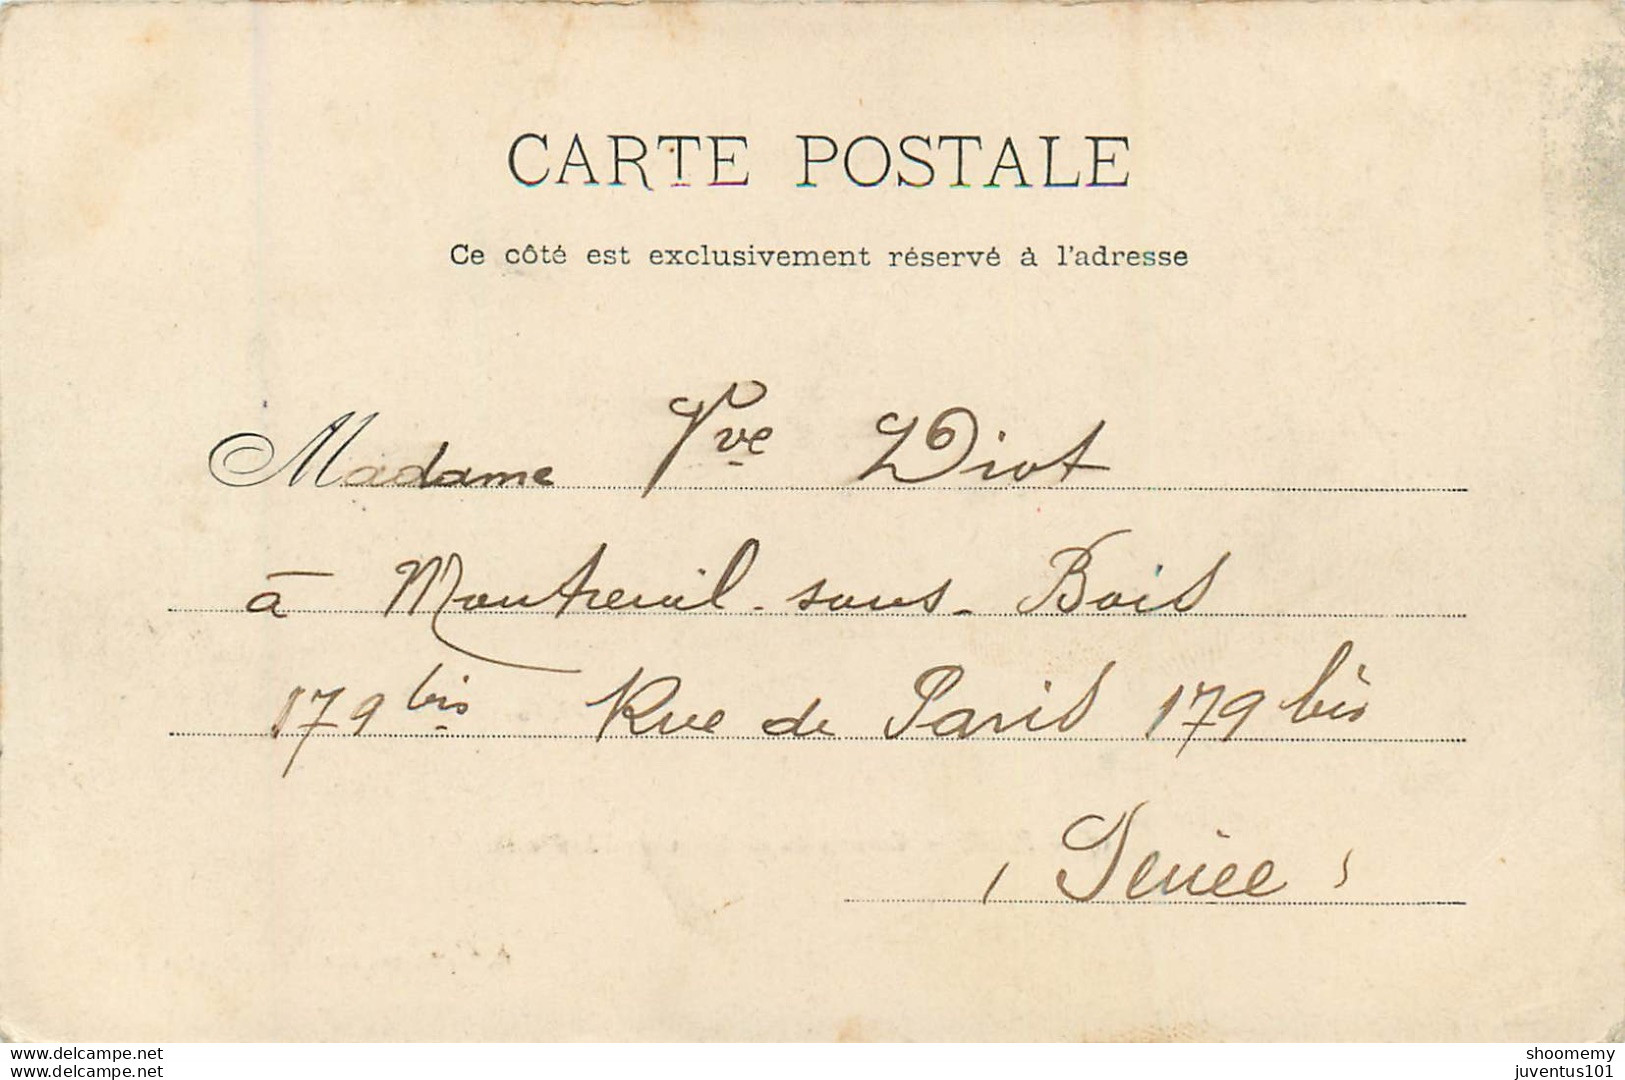 CARTE POSTALE
Ce côté est exclusivement réservé à l'adresse
Madame Vve Diot
à Montreuil-sous-Bois
179 bis Rue de Paris 179 bis
(Seine)
www.delcampe.net
www.delcampe.net
shoomemy
juventus101